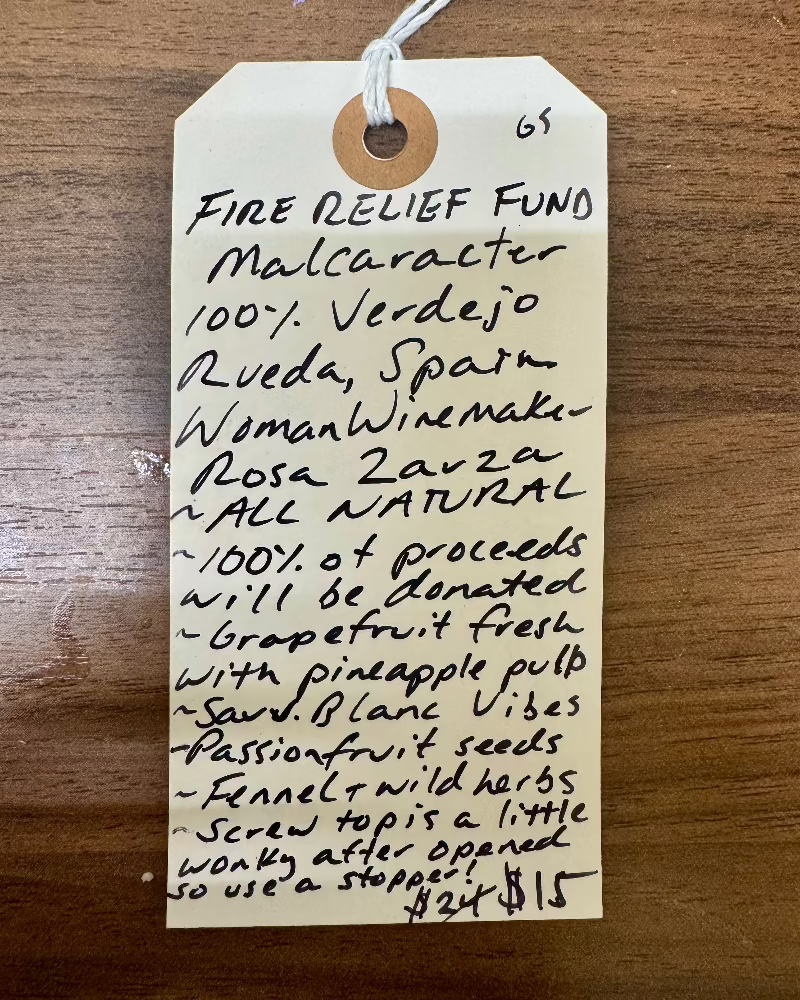 GS
FIRE RELIEF FUND
Malcaracter
100% Verdejo
Rueda, Spain
Woman Winemaker
Rosa Zarza
~ALL NATURAL
~100% of proceeds
will be donated
~Grapefruit fresh
with pineapple pulp
~Sauv. Blanc Vibes
~Passionfruit seeds
~Fennel + wild herbs
~Screw top is a little
wonky after opened
so use a stopper!
$24 $15